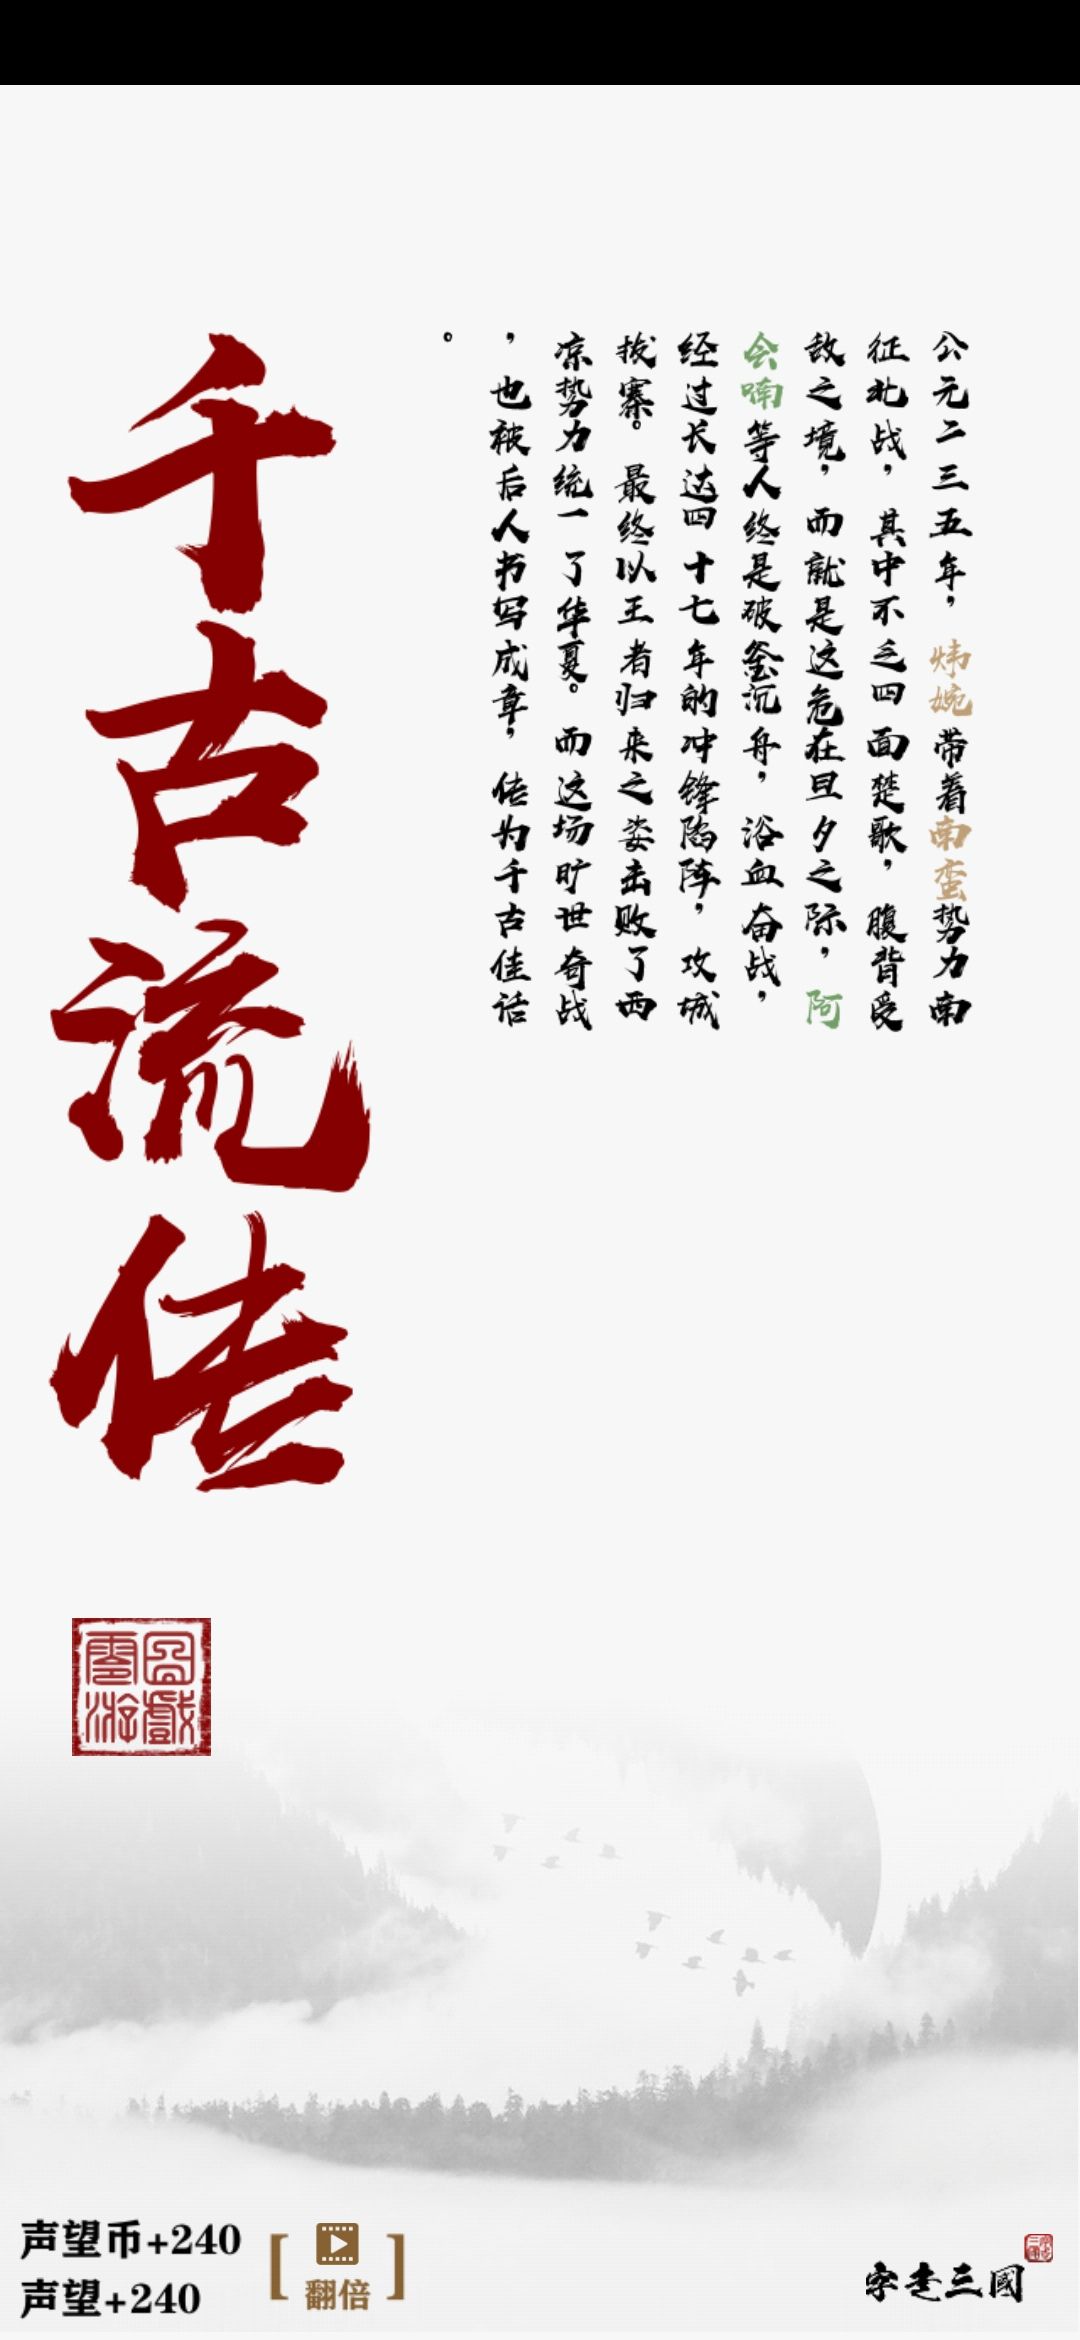 公元二三五年，炜婉带着南蛮势力南
征北战，其中不乏四面楚歌，腹背受
敌之境，而就是这危在旦夕之际，阿
会喃等人终是破釜沉舟，浴血奋战，
经过长达四十七年的冲锋陷阵，攻城
拔寨。最终以王者归来之姿击败了西
凉势力统一了华夏。而这场旷世奇战
，也被后人书写成章，传为千古佳话
。
千古流传
声望币+240
声望+240
翻倍
字走三國